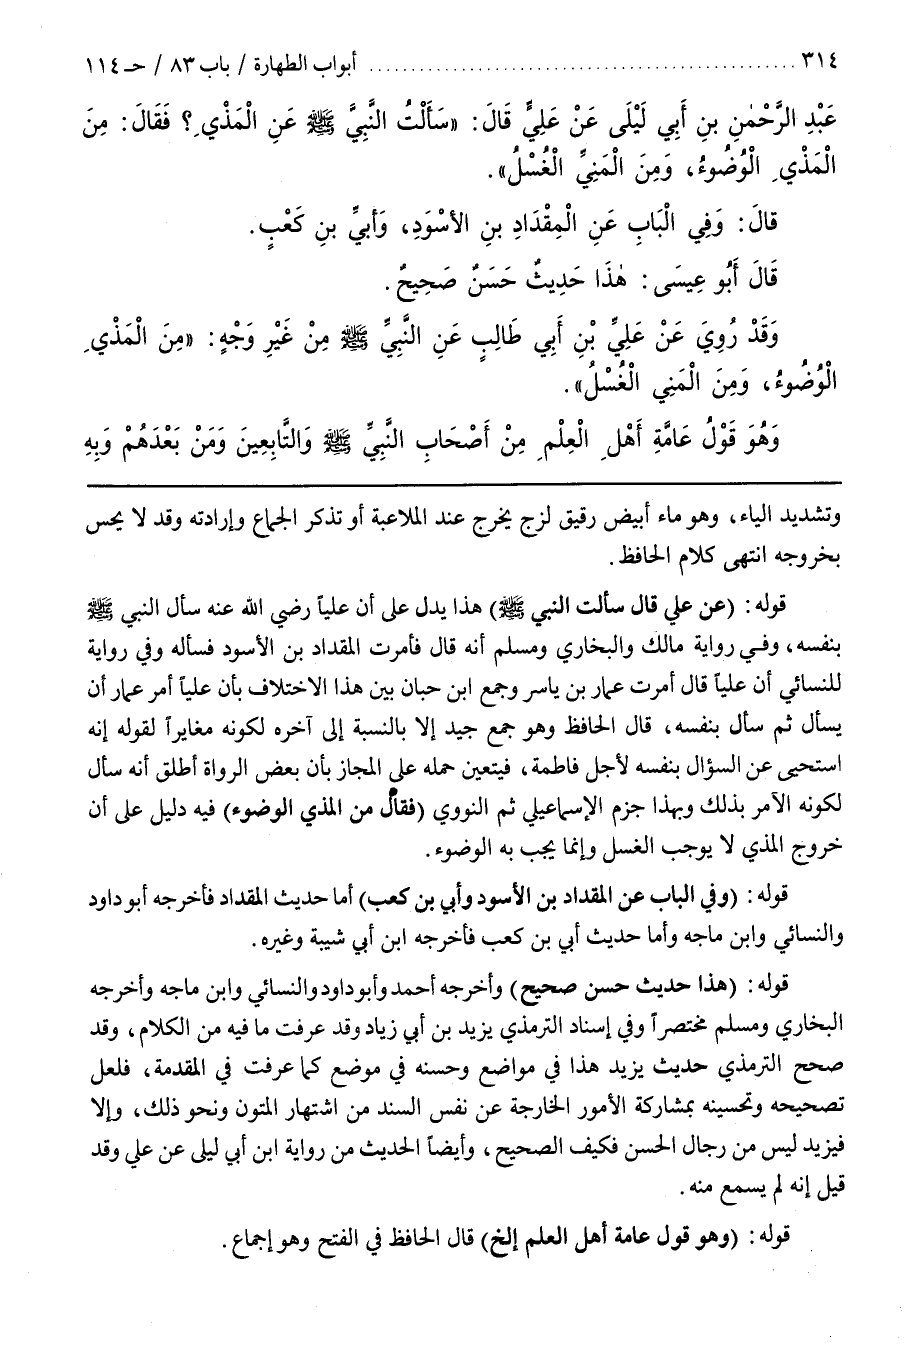 ٣١٤ ........................................................ أبواب الطهارة / باب ٨٣ / حـ ١١٤
عَبْدِ الرَّحْمٰنِ بنِ أَبِي لَيْلَى عَنْ عَلِيٍّ قَالَ: «سَأَلْتُ النَّبِيَّ ﷺ عَنِ الْمَذْيِ؟ فَقَالَ: مِنَ
الْمَذْيِ الْوُضُوءُ، وَمِنَ الْمَنِيِّ الْغُسْلُ».
قالَ: وَفِي الْبَابِ عَنِ الْمِقْدَادِ بنِ الأَسْوَدِ، وَأُبيِّ بنِ كَعْبٍ.
قَالَ أَبُو عِيسَى: هٰذَا حَدِيثٌ حَسَنٌ صَحِيحٌ.
وَقَدْ رُوِيَ عَنْ عَلِيِّ بْنِ أَبِي طَالِبٍ عَنِ النَّبِيِّ ﷺ مِنْ غَيْرِ وَجْهٍ: «مِنَ الْمَذْيِ
الْوُضُوءُ، وَمِنَ الْمَنِي الْغُسْلُ».
وَهُوَ قَوْلُ عَامَّةِ أَهْلِ الْعِلْمِ مِنْ أَصْحَابِ النَّبِيِّ ﷺ وَالتَّابِعِينَ وَمَنْ بَعْدَهُمْ وَبِهِ
وتشديد الياء، وهو ماء أبيض رقيق لزج يخرج عند الملاعبة أو تذكر الجماع وإرادته وقد لا يحس
بخروجه انتهى كلام الحافظ.
قوله: (عن علي قال سألت النبي ﷺ) هذا يدل على أن علياً رضي الله عنه سأل النبي ﷺ
بنفسه، وفي رواية مالك والبخاري ومسلم أنه قال فأمرت المقداد بن الأسود فسأله وفي رواية
للنسائي أن علياً قال أمرت عمار بن ياسر وجمع ابن حبان بين هذا الاختلاف بأن علياً أمر عمار أن
يسأل ثم سأل بنفسه، قال الحافظ وهو جمع جيد إلا بالنسبة إلى آخره لكونه مغايراً لقوله إنه
استحيى عن السؤال بنفسه لأجل فاطمة، فيتعين حمله على المجاز بأن بعض الرواة أطلق أنه سأل
لكونه الآمر بذلك وبهذا جزم الإسماعيلي ثم النووي (فقال من المذي الوضوء) فيه دليل على أن
خروج المذي لا يوجب الغسل وإنما يجب به الوضوء.
قوله: (وفي الباب عن المقداد بن الأسود وأبي بن كعب) أما حديث المقداد فأخرجه أبو داود
والنسائي وابن ماجه وأما حديث أبي بن كعب فأخرجه ابن أبي شيبة وغيره.
قوله: (هذا حديث حسن صحيح) وأخرجه أحمد وأبو داود والنسائي وابن ماجه وأخرجه
البخاري ومسلم مختصراً وفي إسناد الترمذي يزيد بن أبي زياد وقد عرفت ما فيه من الكلام، وقد
صحح الترمذي حديث يزيد هذا في مواضع وحسنه في موضع كما عرفت في المقدمة، فلعل
تصحيحه وتحسينه بمشاركة الأمور الخارجة عن نفس السند من اشتهار المتون ونحو ذلك، وإلا
فيزيد ليس من رجال الحسن فكيف الصحيح، وأيضاً الحديث من رواية ابن أبي ليلى عن علي وقد
قيل إنه لم يسمع منه.
قوله: (وهو قول عامة أهل العلم إلخ) قال الحافظ في الفتح وهو إجماع.